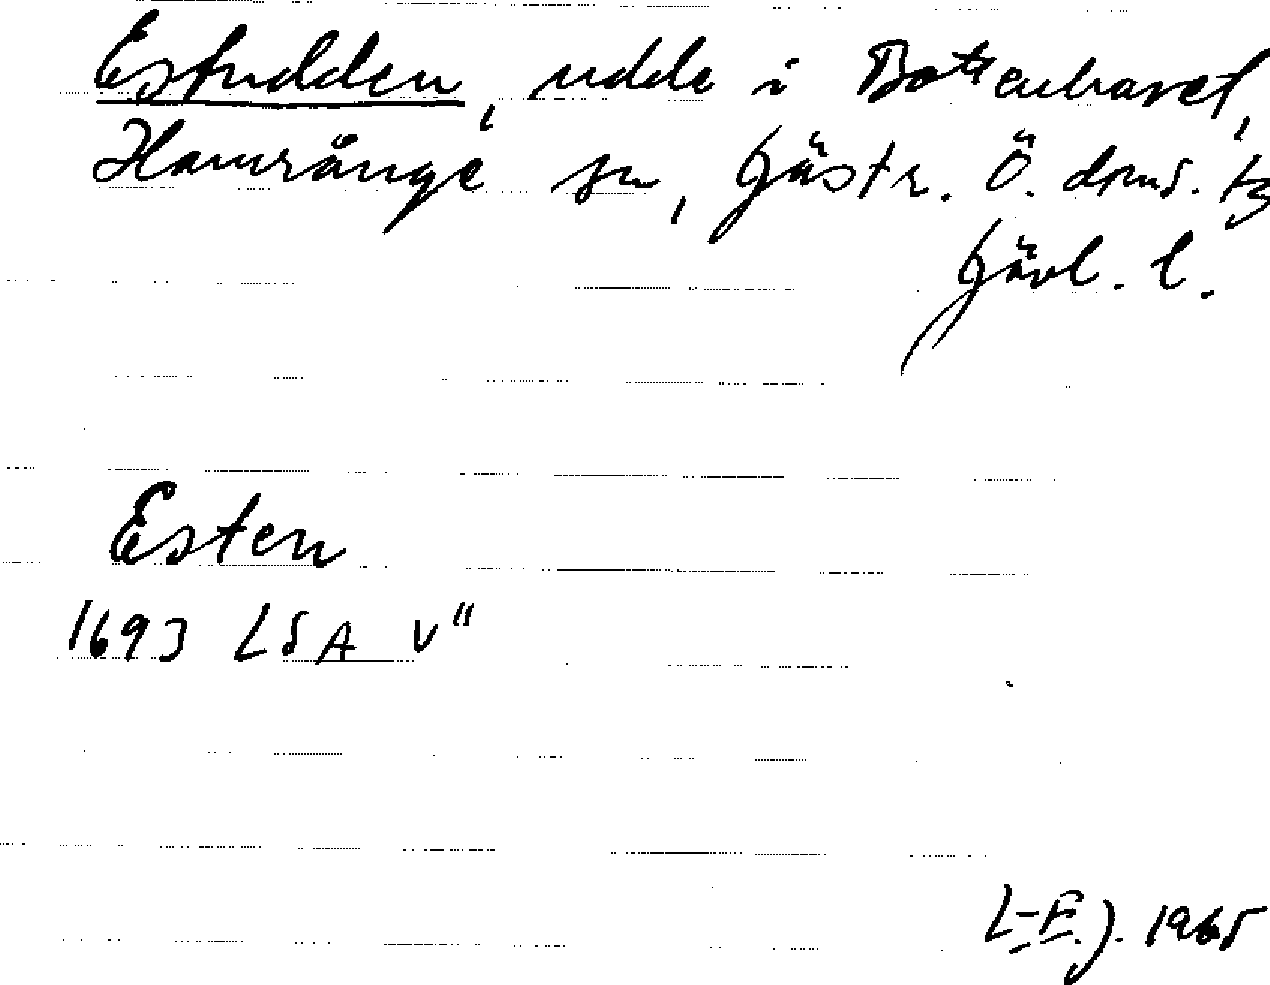 Estudden, udde i Bottenhavet,
Hamrånge sn, Gästr. Ö. dms. tg
Gävl. l.
Esten
1693 LSA V"
L-E. J. 1965